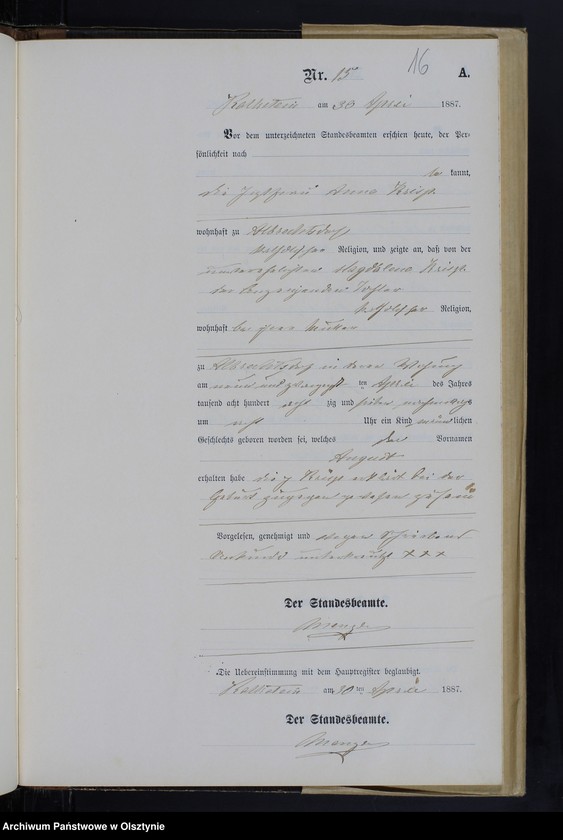 16
Nr. 15 A.
Kalkstein am 30 April 1887.
Vor dem unterzeichneten Standesbeamten erschien heute, der Per-
sönlichkeit nach
be kannt,
die Anna
wohnhaft zu Albrechtsdorf
katholischer Religion, und zeigte an, daß von der
unverehelichten Magdalena
der Anzeigenden Tochter
katholischer Religion,
wohnhaft bei ihrer Mutter
zu Albrechtsdorf in deren Wohnung
am neun und zwanzigsten ten April des Jahres
tausend acht hundert acht zig und sieben nachmittags
um acht Uhr ein Kind männlichen
Geschlechts geboren worden sei, welches den Vornamen
August
erhalten habe die erklärt bei der
Geburt zugegen gewesen zu sein
Vorgelesen, genehmigt und wegen Schreibens
Unkunde unterkreuzt + + +
Der Standesbeamte.
Die Uebereinstimmung mit dem Hauptregister beglaubigt.
Kalkstein am 30 ten April 1887.
Der Standesbeamte.
Archiwum Państwowe w Olsztynie